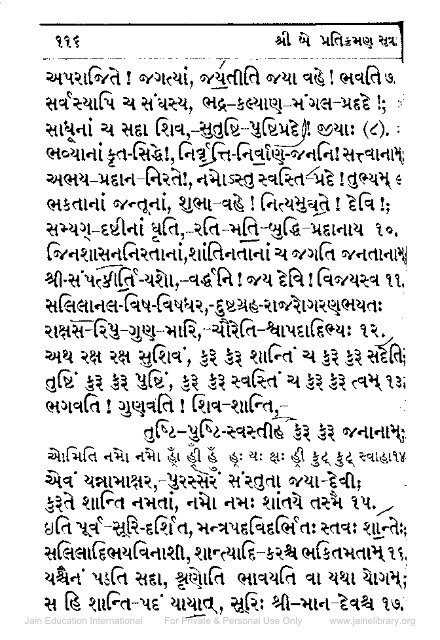 ૧૧૬ શ્રી બે પ્રતિક્રમણ સૂત્ર
અપરાજિતે ! જગત્યાં, જયતીતિ જયા વહે ! ભવતિ ૭
સર્વસ્યાપિ ચ સંઘસ્ય, ભદ્ર-કલ્યાણ-મંગલ-પ્રદદે !;
સાધૂનાં ચ સદા શિવ,-સુતુષ્ટિ-પુષ્ટિપ્રદે ! જીયાઃ (૮).
ભવ્યાનાં કૃત-સિદ્ધે!, નિર્વૃત્તિ-નિર્વાણ-જનનિ! સત્ત્વાનામ્;
અભય-પ્રદાન-નિરતે!, નમોઽસ્તુ સ્વસ્તિ-પ્રદે ! તુભ્યમ્ ૯
ભક્તાનાં જન્તૂનાં, શુભા-વહે ! નિત્યમુદ્યતે ! દેવિ !;
સમ્યગ્-દષ્ટીનાં ધૃતિ,-રતિ-મતિ-બુદ્ધિ-પ્રદાનાય ૧૦.
જિનશાસનનિરતાનાં,શાંતિનતાનાં ચ જગતિ જનતાનામ્
શ્રી-સંપત્કીર્તિ-યશો,-વર્દ્ધનિ ! જય દેવિ ! વિજયસ્વ ૧૧.
સલિલાનલ-વિષ-વિષધર,-દુષ્ટગ્રહ-રાજરોગરણભયતઃ
રાક્ષસ-રિપુ-ગુણ-મારિ,-ચૌરેતિ-શ્વાપદાદિભ્યઃ ૧૨.
અથ રક્ષ રક્ષ સુશિવં, કુરૂ કુરૂ શાન્તિં ચ કુરૂ કુરૂ સદેતિ;
તુષ્ટિં કુરૂ કુરૂ પુષ્ટિં, કુરૂ કુરૂ સ્વસ્તિં ચ કુરૂ કુરૂ ત્વમ્ ૧૩
ભગવતિ ! ગુણવતિ ! શિવ-શાન્તિ,-
તુષ્ટિ-પુષ્ટિ-સ્વસ્તીહ કુરૂ કુરૂ જનાનામ્;
ઓમિતિ નમો નમો હ્રાઁ હ્રીઁ હ્રૂઁ હ્રઃ યઃ ક્ષઃ હ્રી ફુટ્ ફુટ્ સ્વાહા૧૪
એવં યન્નામાક્ષર,-પુરસ્સરં સંસ્તુતા જયા-દેવી;
કુરૂતે શાન્તિ નમતાં, નમો નમઃ શાંતયે તસ્મૈ ૧૫.
ઇતિ પૂર્વ-સૂરિ-દર્શિત, મન્ત્રપદવિદર્ભિતઃ સ્તવઃ શાન્તેઃ;
સલિલાદિભયવિનાશી, શાન્ત્યાદિ-કરશ્ચ ભક્તિમતામ્ ૧૬.
યશ્ચૈનં પઠતિ સદા, શ્રૃણોતિ ભાવયતિ વા યથા યોગમ્;
સ હિ શાન્તિ-પદં યાયાત્, સૂરિઃ શ્રી-માન-દેવશ્ચ ૧૭.
Jain Education International For Private & Personal Use Only www.jainelibrary.org